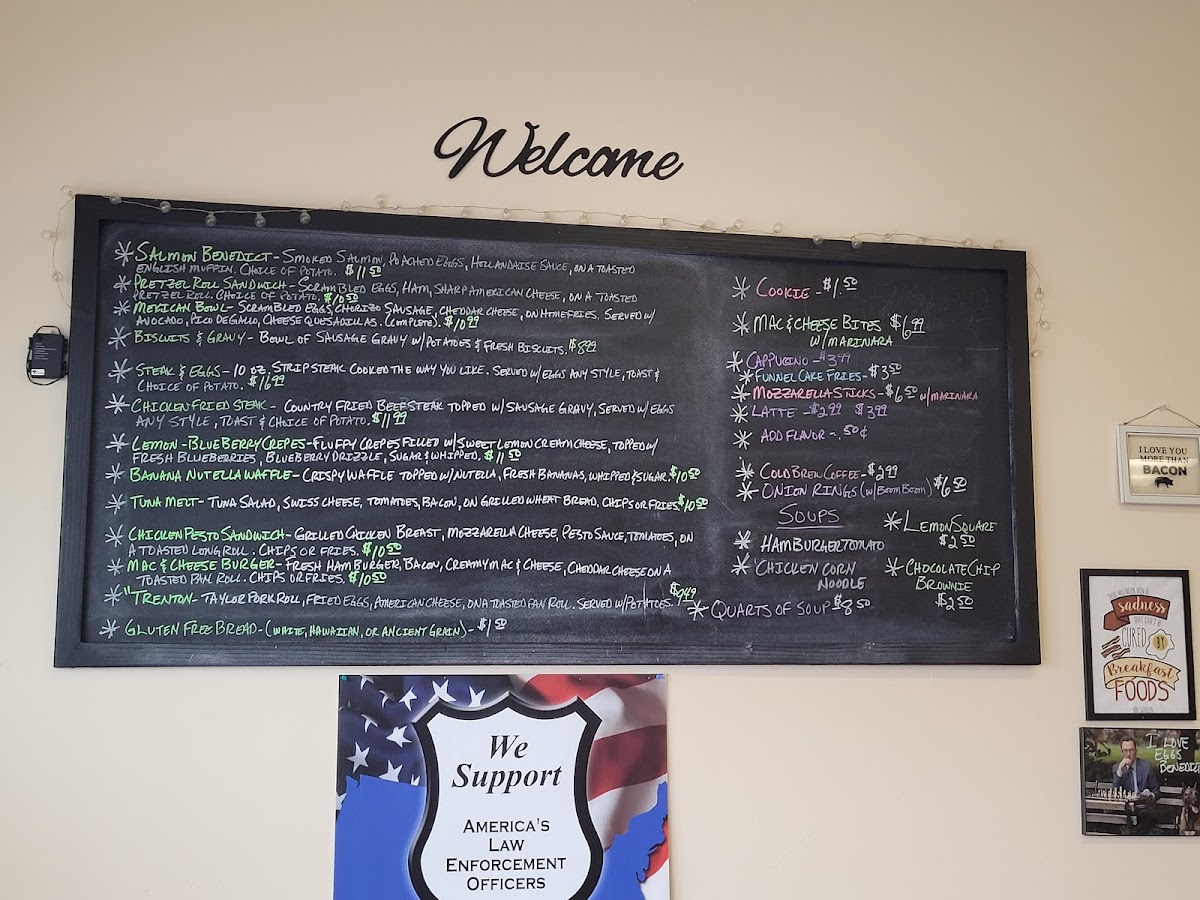 Welcome
* SALMON BENEDICT - SMOKED SALMON, POACHED EGGS, HOLLANDAISE SAUCE, ON A TOASTED
ENGLISH MUFFIN. CHOICE OF POTATO. $11 50
* PRETZEL ROLL SANDWICH - SCRAMBLED EGGS, HAM, SHARP AMERICAN CHEESE, ON A TOASTED
PRETZEL ROLL. CHOICE OF POTATO. $10 50
* MEXICAN BOWL - SCRAMBLED EGGS, CHORIZO SAUSAGE, CHEDDAR CHEESE, ON HOMEFRIES. SERVED W/
AVOCADO, PICO DE GALLO, CHEESE QUESADILLAS. (COMPLETE). $10 99
* BISCUITS & GRAVY - BOWL OF SAUSAGE GRAVY W/POTATOES & FRESH BISCUITS. $8 99
* STEAK & EGGS - 10 OZ. STRIP STEAK COOKED THE WAY YOU LIKE. SERVED W/ EGGS ANY STYLE, TOAST &
CHOICE OF POTATO. $16 99
* CHICKEN FRIED STEAK - COUNTRY FRIED BEEF STEAK TOPPED W/ SAUSAGE GRAVY, SERVED W/ EGGS
ANY STYLE, TOAST & CHOICE OF POTATO. $11 99
* LEMON-BLUEBERRY CREPES - FLUFFY CREPES FILLED W/ SWEET LEMON CREAM CHEESE, TOPPED W/
FRESH BLUEBERRIES, BLUEBERRY DRIZZLE, SUGAR & WHIPPED. $11 50
* BANANA NUTELLA WAFFLE - CRISPY WAFFLE TOPPED W/NUTELLA, FRESH BANANAS, WHIPPED & SUGAR. $10 50
* TUNA MELT - TUNA SALAD, SWISS CHEESE, TOMATOES, BACON, ON GRILLED WHEAT BREAD. CHIPS OR FRIES. $10 50
* CHICKEN PESTO SANDWICH - GRILLED CHICKEN BREAST, MOZZARELLA CHEESE, PESTO SAUCE, TOMATOES, ON
A TOASTED LONG ROLL. CHIPS OR FRIES. $10 50
* MAC & CHEESE BURGER - FRESH HAMBURGER, BACON, CREAMY MAC & CHEESE, CHEDDAR CHEESE ON A
TOASTED PAN ROLL. CHIPS OR FRIES. $10 50
* "TRENTON - TAYLOR PORK ROLL, FRIED EGGS, AMERICAN CHEESE, ON A TOASTED PAN ROLL. SERVED W/POTATOES. $9 49
* GLUTEN FREE BREAD - (WHITE, HAWAIIAN, OR ANCIENT GRAIN) - $1 50
* COOKIE - $1 50
* MAC & CHEESE BITES $6 99
W/ MARINARA
* CAPPUCINO - $3 99
* FUNNEL CAKE FRIES - $3 50
* MOZZARELLA STICKS - $6 50 W/ MARINARA
* LATTE - $2 99 $3 99
* ADD FLAVOR - .50¢
* COLD BREW COFFEE - $2 99
* ONION RINGS (W/ BOOM BOOM) $6 50
SOUPS
* HAMBURGER TOMATO
* CHICKEN CORN
NOODLE
* QUARTS OF SOUP $8 50
* LEMON SQUARE
$2 50
* CHOCOLATE CHIP
BROWNIE
$2 50
We
Support
AMERICA'S
LAW
ENFORCEMENT
OFFICERS
I LOVE YOU
MORE THAN
BACON
sadness
CURED BY
Breakfast
FOODS
I LOVE
EGGS
BENEDICT